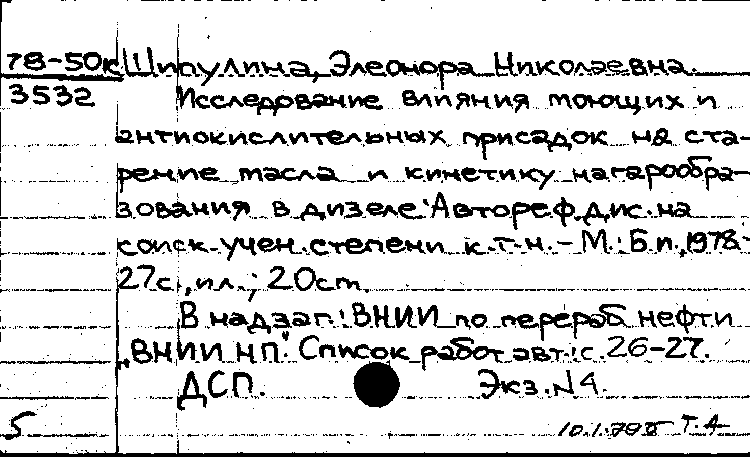 78-50к Шипулина, Элеонора Николаевна.
3532 Исследование влияния моющих и
антиокислительных присадок на ста-
рение масла и кинетику нагарообра-
зования в дизеле: Автореф. дис. на
соиск. учен. степени к.т.н. - М.: Б.и., 1978.-
27с., ил.; 20см.
В надзаг.: ВНИИ по перераб. нефти
„ВНИИ НП". Список работ авт.: с. 26-27.
ДСП. Экз. N4.
5